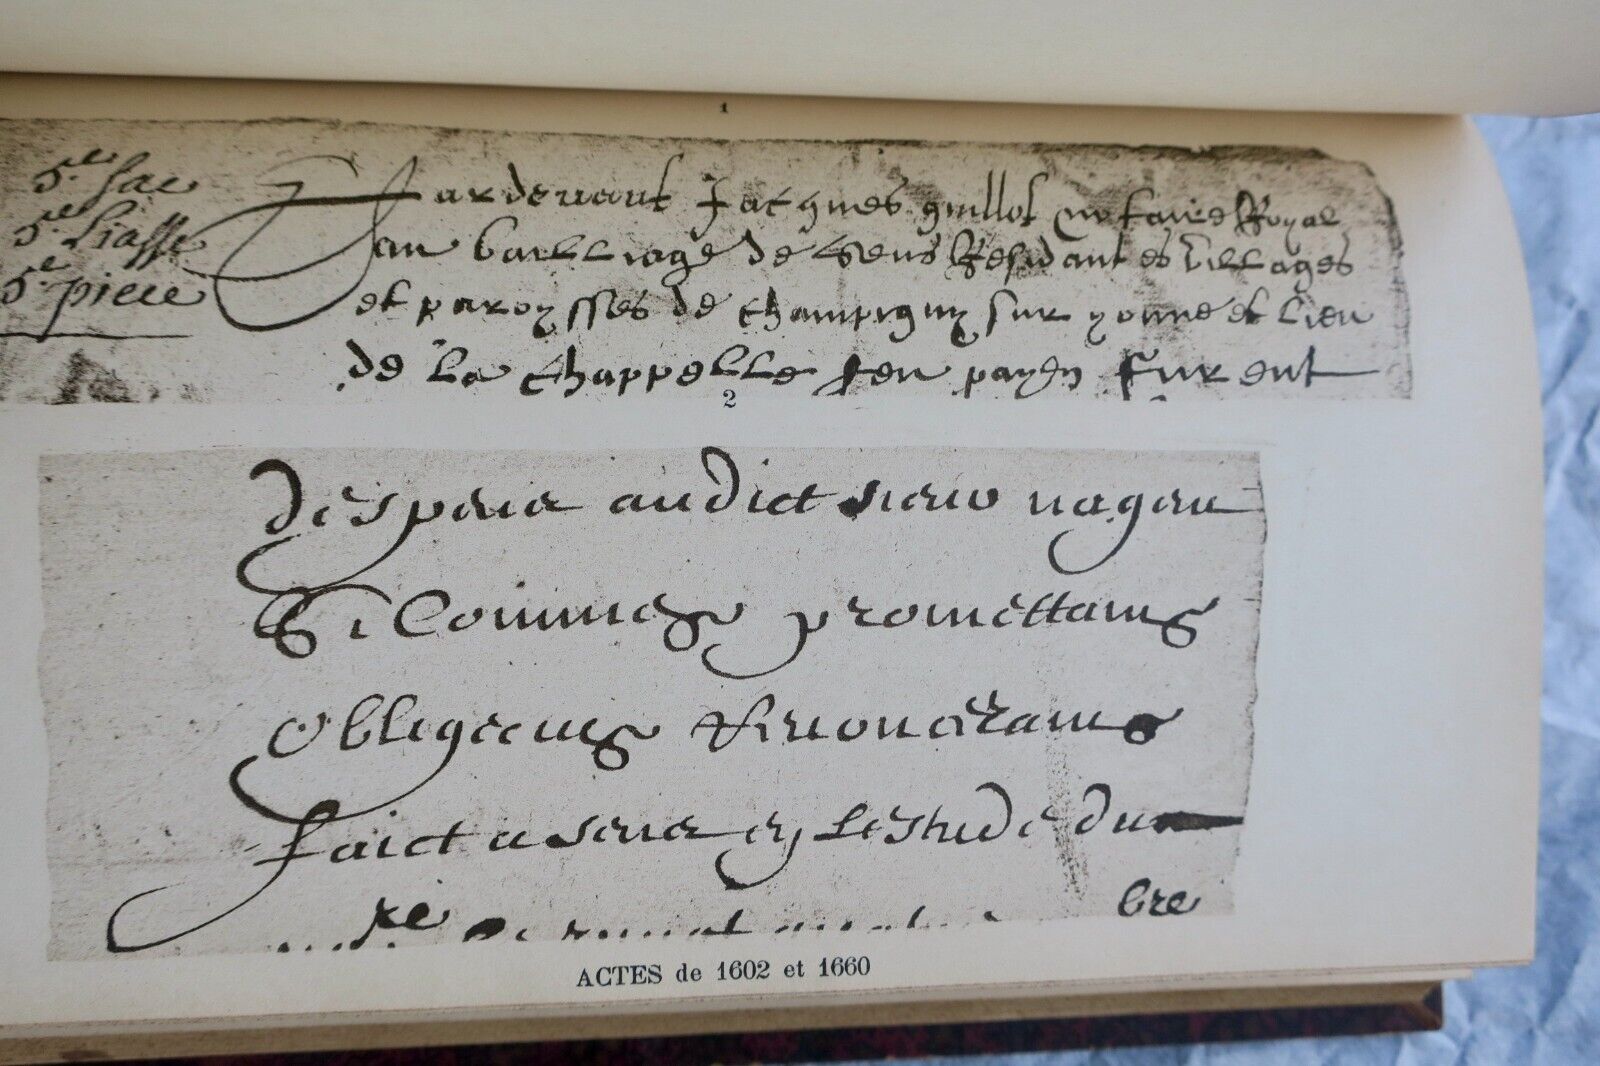 1
5.e sac
5.e Liasse
5.e piece
Pardevant Jacques guillot notaire Royal
au bailliage de Sens Residant es Villages
et paroysses de Champigny sur yonne et lieu
de la Chappelle feu payen furent
2
despence audict sieur
Si Comme promettans
obligeans Renonceans
faict a sens en lestude du
re bre
ACTES de 1602 et 1660